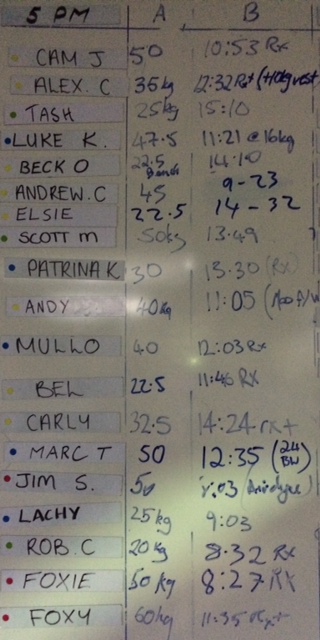 5 PM A B
CAM J 50 10:53 Rx
ALEX. C 35kg 12:32 Rx+ (+10kg vest
TASH 25kg 15:10
LUKE K. 47.5 11:21 @ 16kg
BECK O 22.5 Bands 14:10
ANDREW.C 45 9-23
ELSIE 22.5 14-32
SCOTT M 50kg 13:49
PATRINA K 30 13:30 (RX)
ANDY 40kg 11:05
MULLO 40 12:03 Rx
BEL 22.5 11:46 RX
CARLY 32.5 14:24 rx+
MARC T 50 12:35 (24 BW)
JIM S. 50
LACHY 25kg 9:03
ROB.C 20kg 8:32 Rx
FOXIE 50kg 8:27 RX
FOXY 60kg 11:35 Rx+